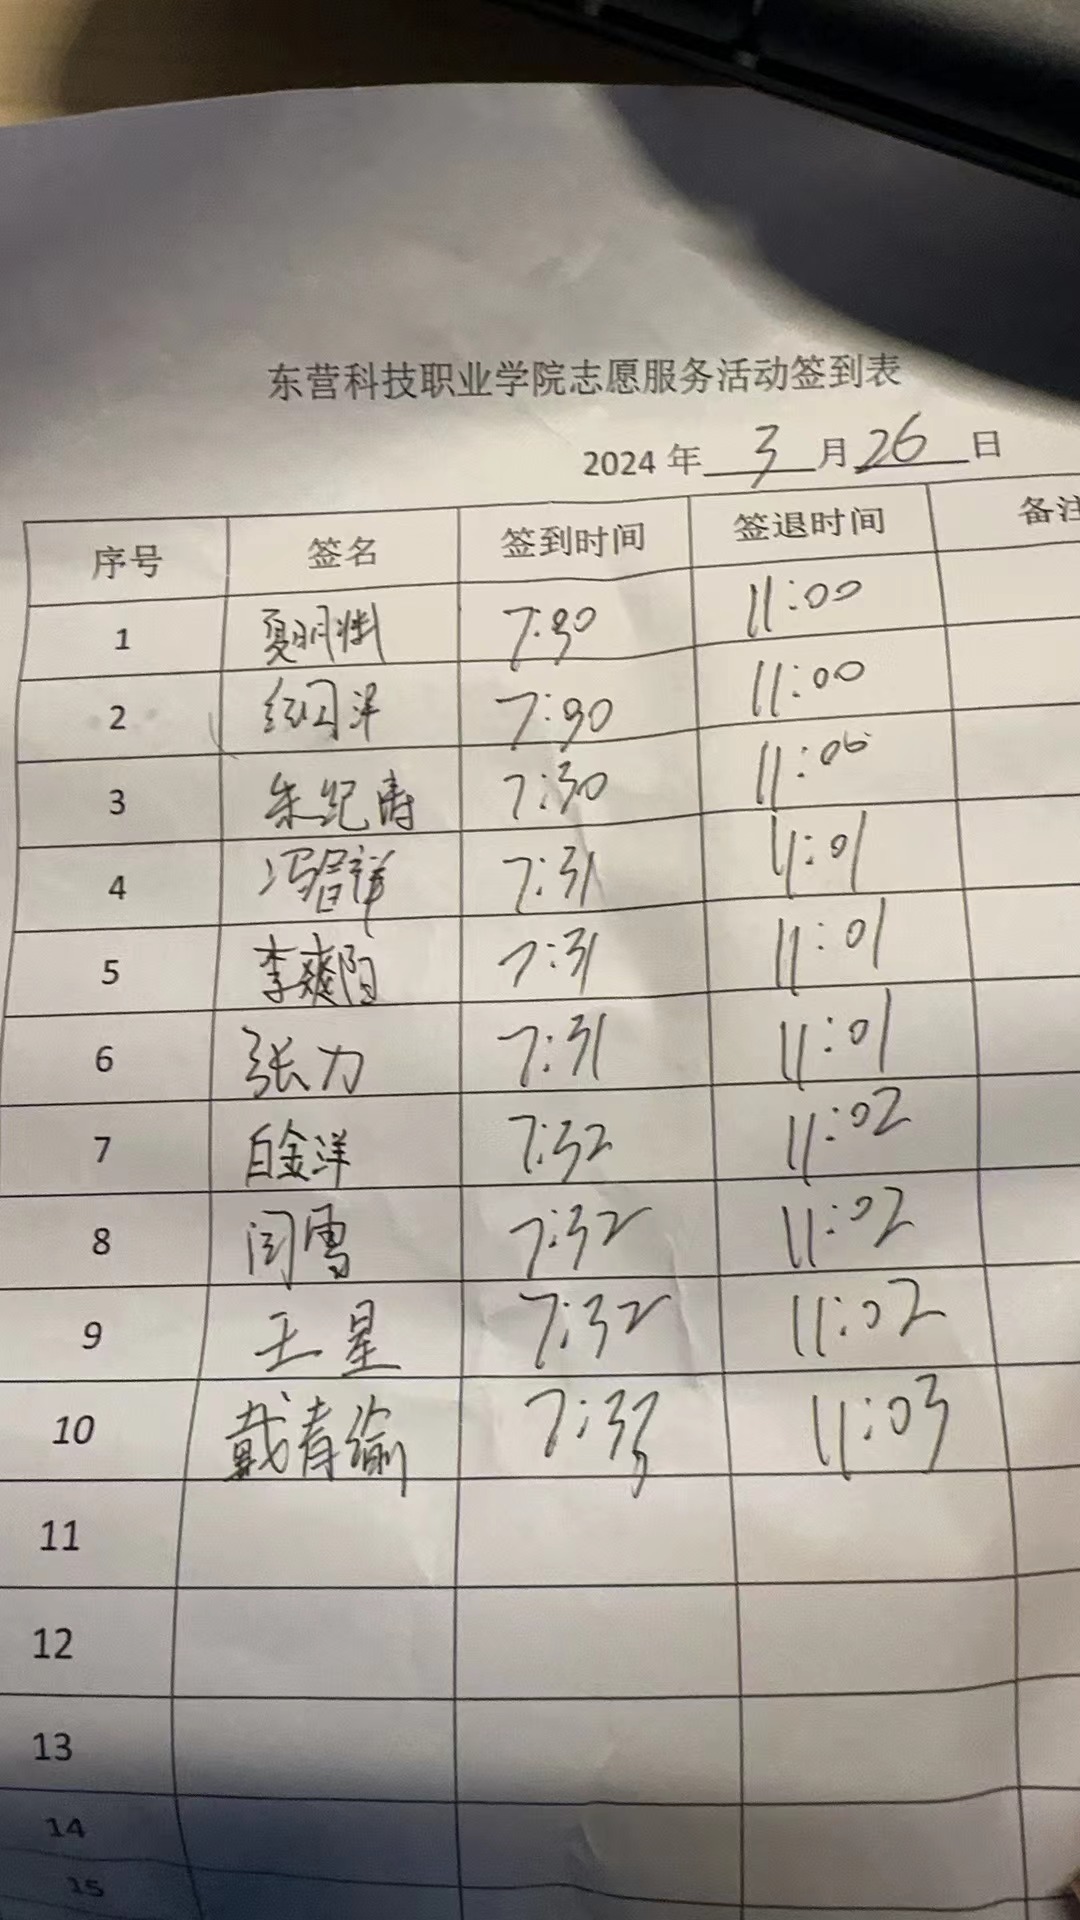 东营科技职业学院志愿服务活动签到表
2024 年 3 月 26 日
序号 签名 签到时间 签退时间 备注
1 夏明 7:30 11:00
2 7:30 11:00
3 朱纪涛 7:30 11:00
4 冯智祥 7:31 11:01
5 李爽阳 7:31 11:01
6 张力 7:31 11:01
7 白金洋 7:32 11:02
8 闫雪 7:32 11:02
9 王星 7:32 11:02
10 戴青 7:33 11:03
11
12
13
14
15